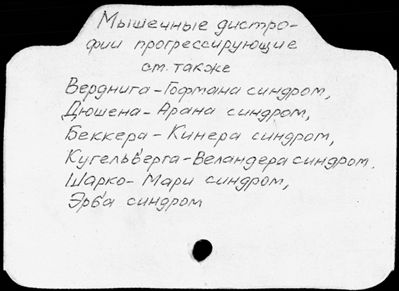 Мышечные дистро-
фии прогрессирующие
см. также
Верднига-Гофмана синдром,
Дюшена-Арана синдром,
Беккера-Кинера синдром,
Кугельберга-Веландера синдром.
Шарко-Мари синдром,
Эрба синдром